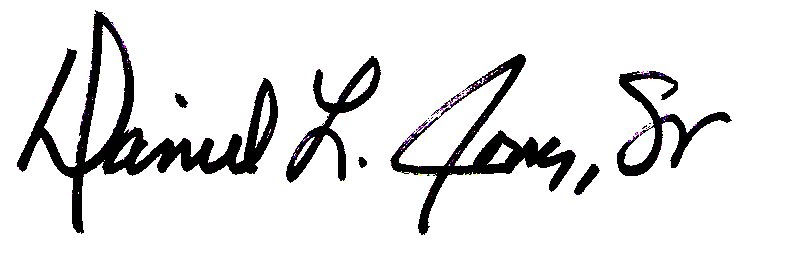 Daniel L. Jones, Sr